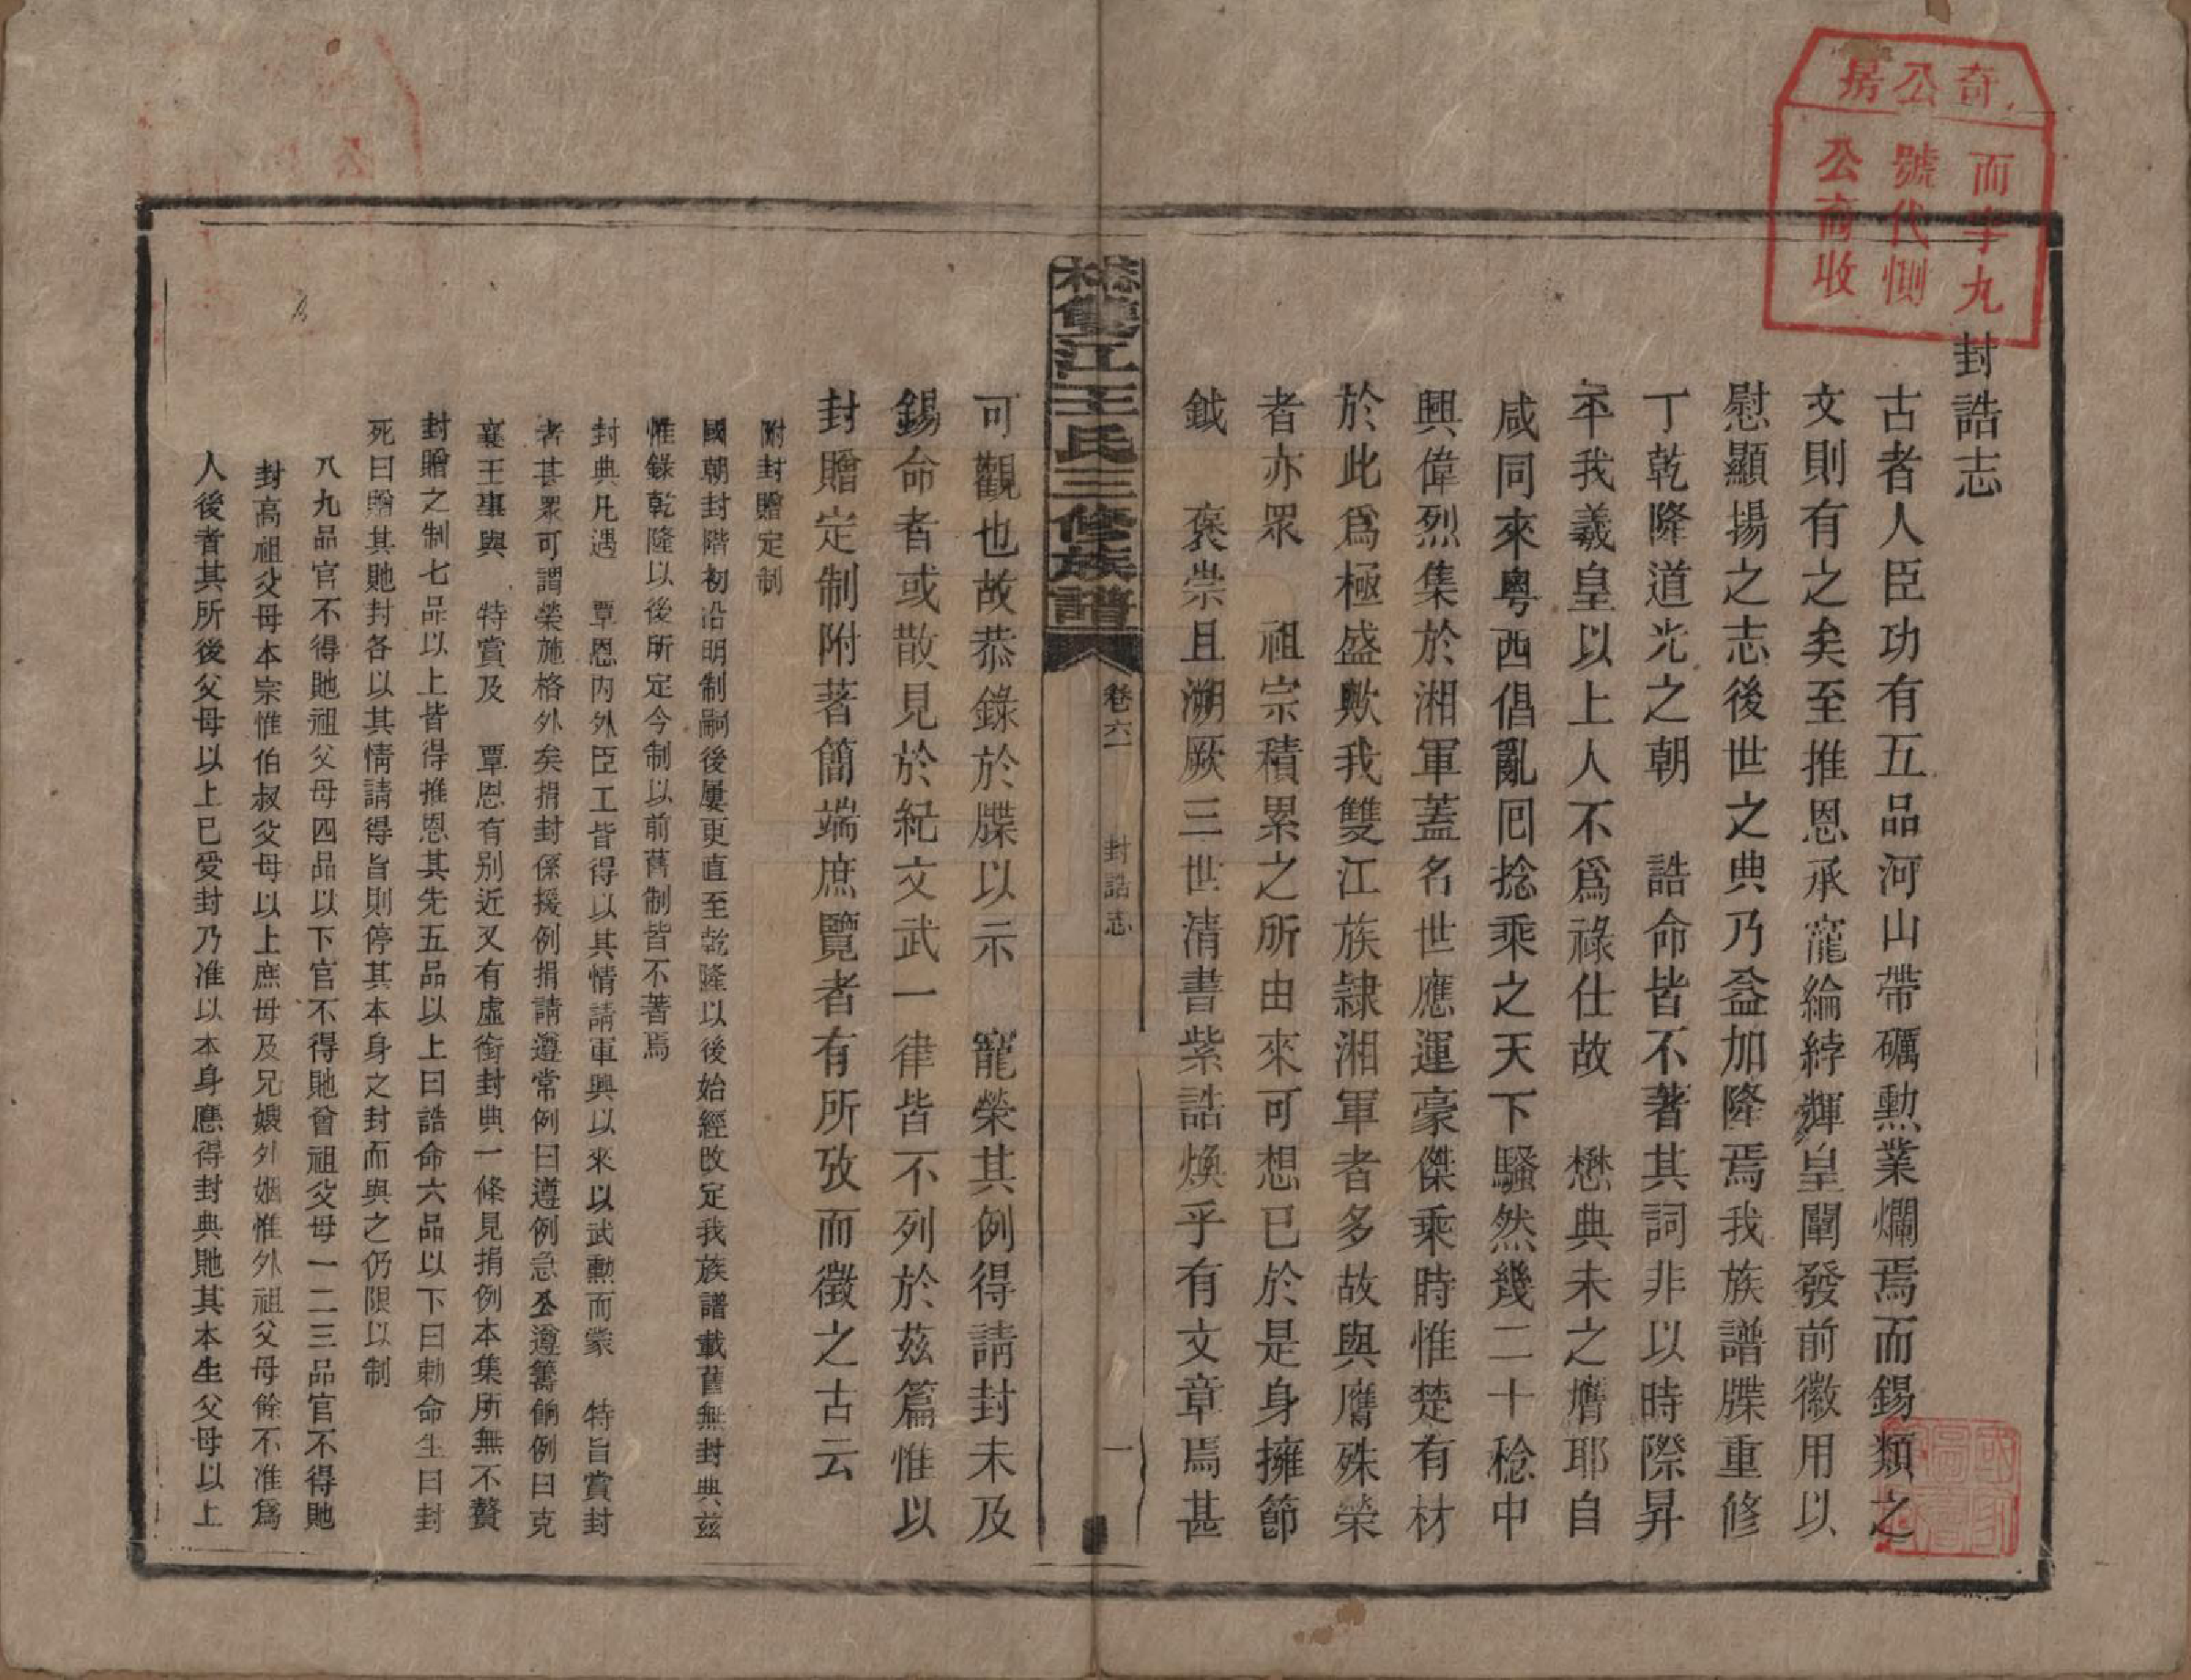 奇公房
而字九
號代惻
公商收
封誥志
古者人臣功有五品河山帶礪勲業爛焉而錫類之
文則有之矣至推恩承寵綸綍輝皇闈發前徽用以
慰顯揚之志後世之典乃益加隆焉我族譜牒重修
丁乾隆道光之朝 誥命皆不著其詞非以時際昇
平我羲皇以上人不爲祿仕故 懋典未之膺耶自
咸同來粵西倡亂囘捻乘之天下騷然幾二十稔中
興偉烈集於湘軍蓋名世應運豪傑乘時惟楚有材
於此爲極盛歟我雙江族隷湘軍者多故與膺殊榮
者亦眾 祖宗積累之所由來可想已於是身擁節
鉞 褒崇且溯厥三世清書紫誥煥乎有文章焉甚
雙江王氏三修族譜
卷六一 封誥志 一
可觀也故恭錄於牒以示 寵榮其例得請封未及
錫命者或散見於紀文武一律皆不列於茲篇惟以
封贈定制附著簡端庶覽者有所攷而徵之古云
附封贈定制
國朝封階初沿明制嗣後屢更直至乾隆以後始經改定我族譜載舊無封典茲
惟錄乾隆以後所定今制以前舊制皆不著焉
封典凡遇 覃恩內外臣工皆得以其情請軍興以來以武勳而蒙 特旨賞封
者甚眾可謂榮施格外矣捐封係援例捐請遵常例曰遵例急公遵籌餉例曰克
襄王事與 特賞及 覃恩有别近又有虛銜封典一條見捐例本集所無不贅
封贈之制七品以上皆得推恩其先五品以上曰誥命六品以下曰勅命生曰封
死曰贈其貤封各以其情請得旨則停其本身之封而與之仍限以制
八九品官不得貤祖父母四品以下官不得貤曾祖父母一二三品官不得貤
封高祖父母本宗惟伯叔父母以上庶母及兄嫂外姻惟外祖父母餘不准爲
人後者其所後父母以上已受封乃准以本身應得封典貤其本生父母以上